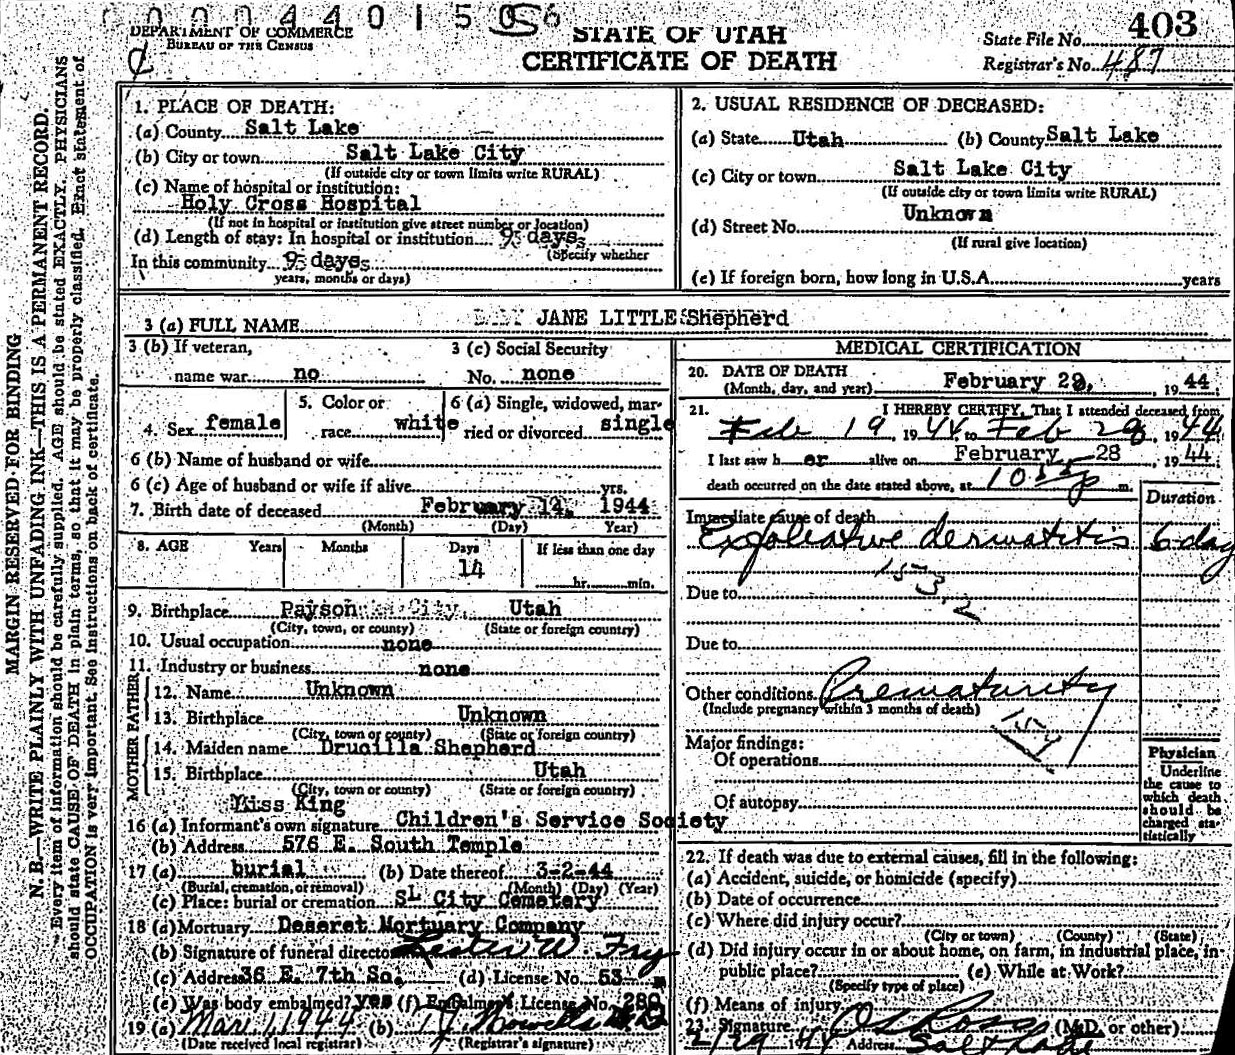 0 0 0 4 4 0 1 5 0 5 6
DEPARTMENT OF COMMERCE
BUREAU OF THE CENSUS
STATE OF UTAH
CERTIFICATE OF DEATH
State File No. 403
Registrar's No. 487
MARGIN RESERVED FOR BINDING
N. B.—WRITE PLAINLY WITH UNFADING INK—THIS IS A PERMANENT RECORD.
Every item of information should be carefully supplied. AGE should be stated EXACTLY. PHYSICIANS
should state CAUSE OF DEATH in plain terms, so that it may be properly classified. Exact statement of
OCCUPATION is very important. See instructions on back of certificate.
1. PLACE OF DEATH:
(a) County Salt Lake
(b) City or town Salt Lake City
(If outside city or town limits write RURAL)
(c) Name of hospital or institution:
Holy Cross Hospital
(If not in hospital or institution give street number or location)
(d) Length of stay: In hospital or institution 9 days
(Specify whether
In this community 9 days
years, months or days)
2. USUAL RESIDENCE OF DECEASED:
(a) State Utah (b) County Salt Lake
(c) City or town Salt Lake City
(If outside city or town limits write RURAL)
(d) Street No. Unknown
(If rural give location)
(e) If foreign born, how long in U.S.A. years
3 (a) FULL NAME JANE LITTLE Shepherd
3 (b) If veteran,
name war no
3 (c) Social Security
No. none
4. Sex female
5. Color or
race white
6 (a) Single, widowed, mar-
ried or divorced single
6 (b) Name of husband or wife
6 (c) Age of husband or wife if alive yrs.
7. Birth date of deceased February 14, 1944
(Month) (Day) Year)
8. AGE Years Months Days If less than one day
14 hr. min.
9. Birthplace Payson City, Utah
(City, town, or county) (State or foreign country)
10. Usual occupation none
11. Industry or business none
FATHER
12. Name Unknown
13. Birthplace Unknown
(City, town or county) (State or foreign country)
MOTHER
14. Maiden name Drucilla Shepherd
15. Birthplace Utah
(City, town or county) (State or foreign country)
Miss King
16 (a) Informant's own signature Children's Service Society
(b) Address 576 E. South Temple
17 (a) burial (b) Date thereof 3-2-44
(Burial, cremation, or removal) (Month) (Day) (Year)
(c) Place: burial or cremation SL City Cemetery
18 (a) Mortuary Deseret Mortuary Company
(b) Signature of funeral director Lester W. Fry
(c) Address 36 E. 7th So. (d) License No. 53
(e) Was body embalmed? yes (f) Embalmer's License No. 280
19 (a) Mar 1, 1944 (b)
(Date received local registrar) (Registrar's signature)
MEDICAL CERTIFICATION
20. DATE OF DEATH
(Month, day, and year) February 28, 1944
21. I HEREBY CERTIFY, That I attended deceased from
Feb 19, 1944 to Feb 28, 1944
I last saw h er alive on February 28, 1944
death occurred on the date stated above, at 10 55 p m.
Duration
Immediate cause of death
Exfoliative dermatitis 6 day
153.2
Due to
Due to
Other conditions Prematurity
(Include pregnancy within 3 months of death)
154
Major findings:
Of operations
Of autopsy
Physician
Underline
the cause to
which death
should be
charged sta-
tistically
22. If death was due to external causes, fill in the following:
(a) Accident, suicide, or homicide (specify)
(b) Date of occurrence
(c) Where did injury occur?
(City or town) (County) (State)
(d) Did injury occur in or about home, on farm, in industrial place, in
public place? (e) While at Work?
(Specify type of place)
(f) Means of injury
23. Signature (M.D. or other)
2/29 1944 Address Salt Lake